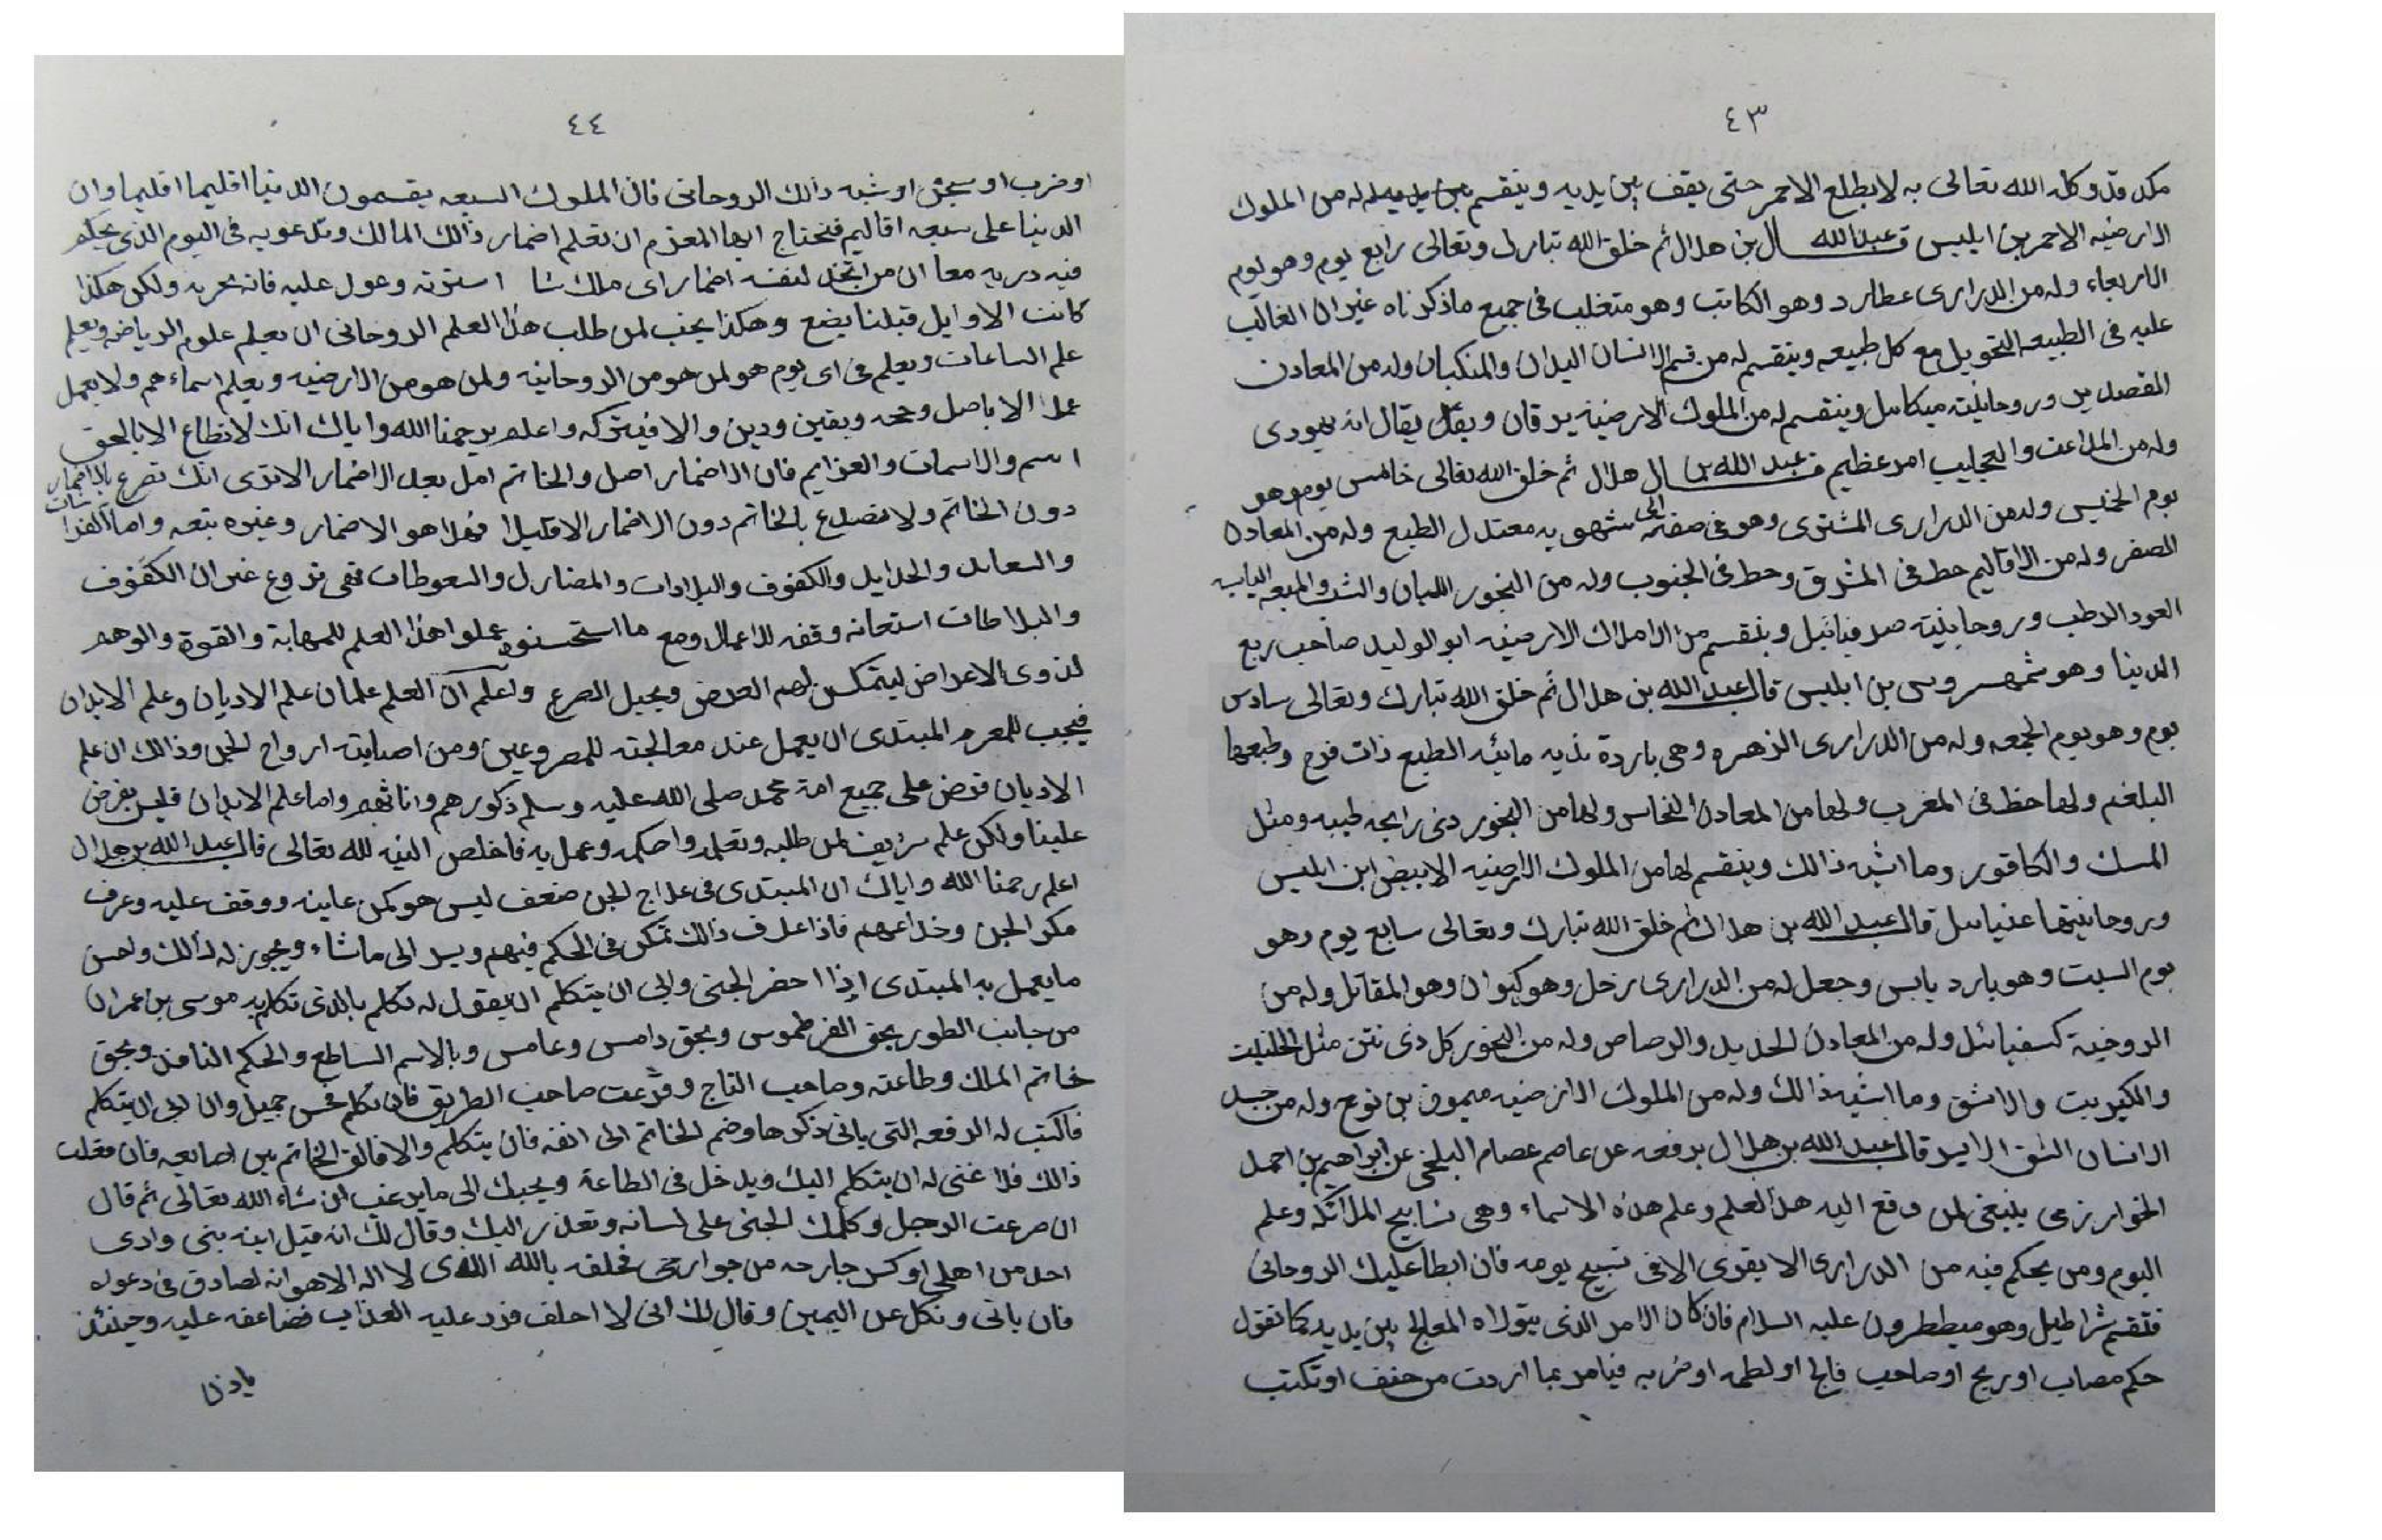 ٤٣
مكه قد وكله الله تعالى به لا يطلع الاحمر حتى يقف بين يديه وينقسم له من الملوك
الارضيه الاحمر بن ابليس قال عبد الله بن هلال ثم خلق الله تبارك وتعالى رابع يوم وهو يوم
الاربعاء وله من الدرارى عطارد وهو الكاتب وهو متغلب فى جميع ماذكرناه غير ان الغالب
عليه فى الطبيعه التحويل مع كل طبيعه وينقسم له من قسم الانسان اليدان والمنكبان وله من المعادن
وروحانيته ميكاىىل وينقسم له من الملوك الارضيه برقان ويقال انه يهودى
وله من الملاعب والعجايب امر عظيم قال عبد الله بن هلال ثم خلق الله تعالى خامس يوم وهو
يوم الخميس وله من الدرارى المشترى وهو فى صفته الى شهوبه معتدل الطبع وله من المعادن
الصفر وله من الاقاليم حط فى المشرق وحط فى الجنوب وله من البخور اللبان والميعه اليابسه
العود الرطب وروحانيته صرفيائيل وينقسم من الاملاك الارضيه ابو الوليد صاحب ربع
الدنيا وهو شمهروس بن ابليس قال عبد الله بن هلال ثم خلق الله تبارك وتعالى سادس
يوم وهو يوم الجمعه وله من الدرارى الزهره وهى باردة نديه مائيه الطبع ذات فرح وطبعها
البلغم ولها حظ فى المغرب ولها من المعادن النحاس ولها من البخور ذى رايحه طيبه ومثل
المسك والكافور وما اشبه ذالك وينقسم لها من الملوك الارضيه الابيض ابن ابليس
وروحانيتها عنياىىل قال عبد الله بن هلال ثم خلق الله تبارك وتعالى سابع يوم وهو
يوم السبت وهو بارد يابس وجعل له من الدرارى زحل وهو كيوان وهو المقاتل وله من
الروحنية كسفيائىل وله من المعادن الحديد والرصاص وله من البخور كل ذى نتن مثل الحلتيت
والكبريت والاشق وما اشبه ذالك وله من الملوك الارضيه ميمون بن نوح وله من جسد
الانسان الشق الايسر قال عبد الله بن هلال يرفعه عن عاصم عصام البلخى عن ابراهيم بن احمد
الخوارزمى ينبغى لمن وقع اليه هذا العلم وعلم هذه الاسماء وهى تسابيح الملائكه وعلم
اليوم ومن يحكم فيه من الدرارى الا يقوى الا فى تسبيح يومه فان ابطا عليك الروحانى
فتقسم شراطيل وهو ميططرون عليه السلام فان كان الامر الذى يتولاه المعالج بين يديه كما تقول
حكم مصاب او ريح او صاحب فالج او لطمه او ضربه فيامر بما اردت من حنف او تكتب
٤٤
او ضرب او سجن او شبه ذالك الروحانى فان الملوك السبعه يقسمون الدنيا اقليما اقليما وان
الدنيا على سبعه اقاليم فتحتاج ايها المعزم ان تعلم اضمار ذالك المالك وتدعو به فى اليوم الذى يحكم
فيه دربه معا ان من اتخذ لنفسه اضمار اى ملك شا استوته وعول عليه فانه يحربه ولكن هكذا
كانت الاوايل قبلنا يضع وهكذا يجب لمن طلب هذا العلم الروحانى ان يعلم علوم الرياض ويعلم
علم الساعات ويعلم فى اى يوم هو لمن هو من الروحانيه ولمن هو من الارضيه ويعلم اسماءهم ولا يعمل
عملا الا باصل وصحه ويقين ودين والا فيتركه واعلم يرحمنا الله واياك انك لا تطاع الا بالحق
اسم والاسمات والعزايم فان الاضمار اصل والخاتم امل بعد الاضمار الا ترى انك تصرع بالاضمار
دون الخاتم ولا تصرع بالخاتم دون الاضمار الا قليلا فهذا هو الاضمار وغيره يتبعه واما
والحدايل والكفوف والبلادات والسعوطات فهى تروع غير ان الكفوف
والبلاطات استعانه وقفه للاعمال ومع ما استحسنوه عملوا هذا العلم للمهابة والقوة والوهم
لذوى الاعراض ليتمكن لهم العرض ويجيل الصرع واعلم ان العلم علمان علم الاديان وعلم الابدان
فيجب للمعزم المبتدى ان يعمل عند معالجته للمصروعين ومن اصابته ارواح الجن وذالك ان علم
الاديان فرض على جميع امة محمد صلى الله عليه وسلم ذكورهم واناثهم واما علم الابدان فليس بفرض
علينا ولكن علم شريف لمن طلبه وتعلمه واحكمه وعمل به فاخلص النيه لله تعالى قال عبد الله بن هلال
اعلم رحمنا الله واياك ان المبتدى فى علاج الجن ضعف ليس هو كمن عاينه ووقف عليه وعرف
مكر الجن وخداعهم فاذا عرف ذالك تمكن فى الحكم فيهم ويسر الى ماشاء ويجوز له ذالك واحسن
مايعمل به المبتدى اذا احضر الجنى وابى ان يتكلم ان يقول له تكلم بالذى تكلم به موسى بن عمران
من جانب الطور بحق الفرطموس وبحق دامس وعامس وبالاسم الساطع والحكم النافذ وبحق
خاتم الملك وطاعته وصاحب التاج وقرعت صاحب الطريق فان تكلم فحسن جميل وان ابى ان يتكلم
فاكتب له الرقعه التى ياتى ذكرها وضم الخاتم الى انفه فان يتكلم والا فالق الخاتم بين اصابعه فان فعلت
ذالك فلا غنى له ان يتكلم اليك ويدخل فى الطاعة ويجيبك الى مايرغب ان شاء الله تعالى ثم قال
ان صرعت الرجل وكلمك الجنى على لسانه وتعذر اليك وقال لك انه قتل ابنه بنى وادى
احد من اهلى او كسر جارحه من جوارحى فحلفه بالله الذى لا اله الا هو انه لصادق فى دعوله
فان ياتى ونكل عن اليمين وقال لك انى لا احلف فزد عليه العذاب فضاعفه عليه وحينئذ
ياذن